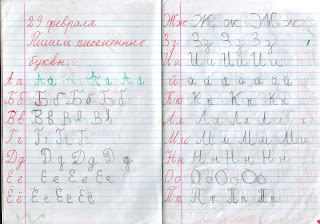 29 февраля
Пишем письменные
буквы.
Аа Аа Аа Аа
Бб Бб Бб Бб
Вв Вв Вв Вв
Гг Гг Гг
Дд Дд Дд Дд
Ее Ее Ее Ее
Ёё Ёё Ёё Ёё
Жж Жж Жж
Зз Зз Зз Зз
Ии Ии Ии Ии
й й й й й й й
Кк Кк Кк Кк
Лл Лл Лл Лл
Мм Мм Мм Мм
Нн Нн Нн Нн
Оо ОоОоОо
Пп Пп Пп Пп